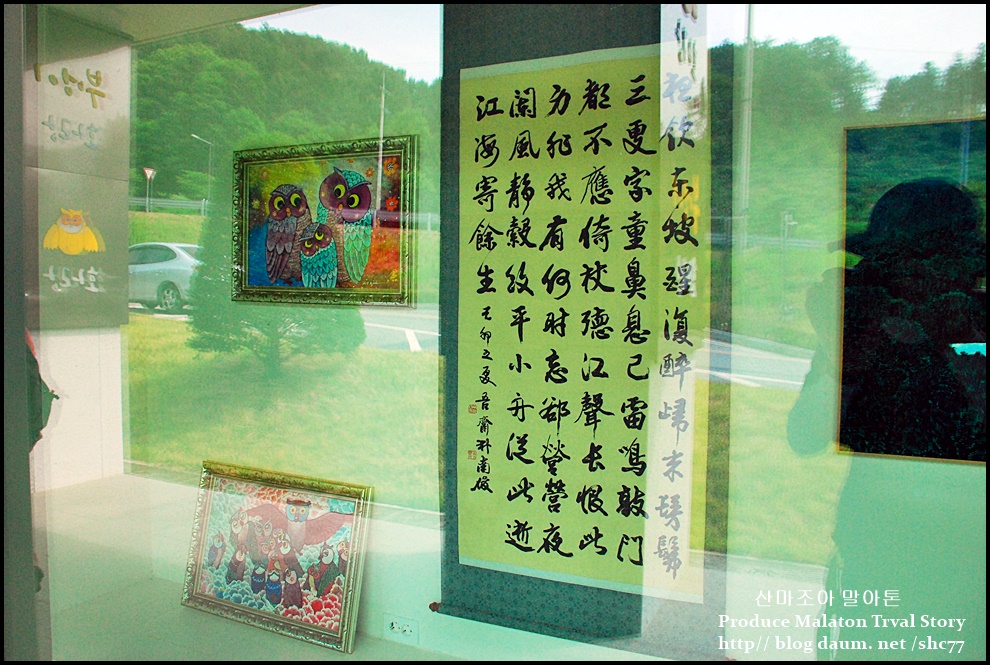 夜飲东坡醒復醉歸来髣髴
三更家童鼻息已雷鳴敲門
都不應倚杖聽江聲长恨此
身非我有何时忘却營營夜
闌風靜縠紋平小舟從此逝
江海寄餘生 己卯之夏
부엉이
화랑
화랑
산마조아 말아톤
Produce Malaton Trval Story
http// blog daum. net /shc77